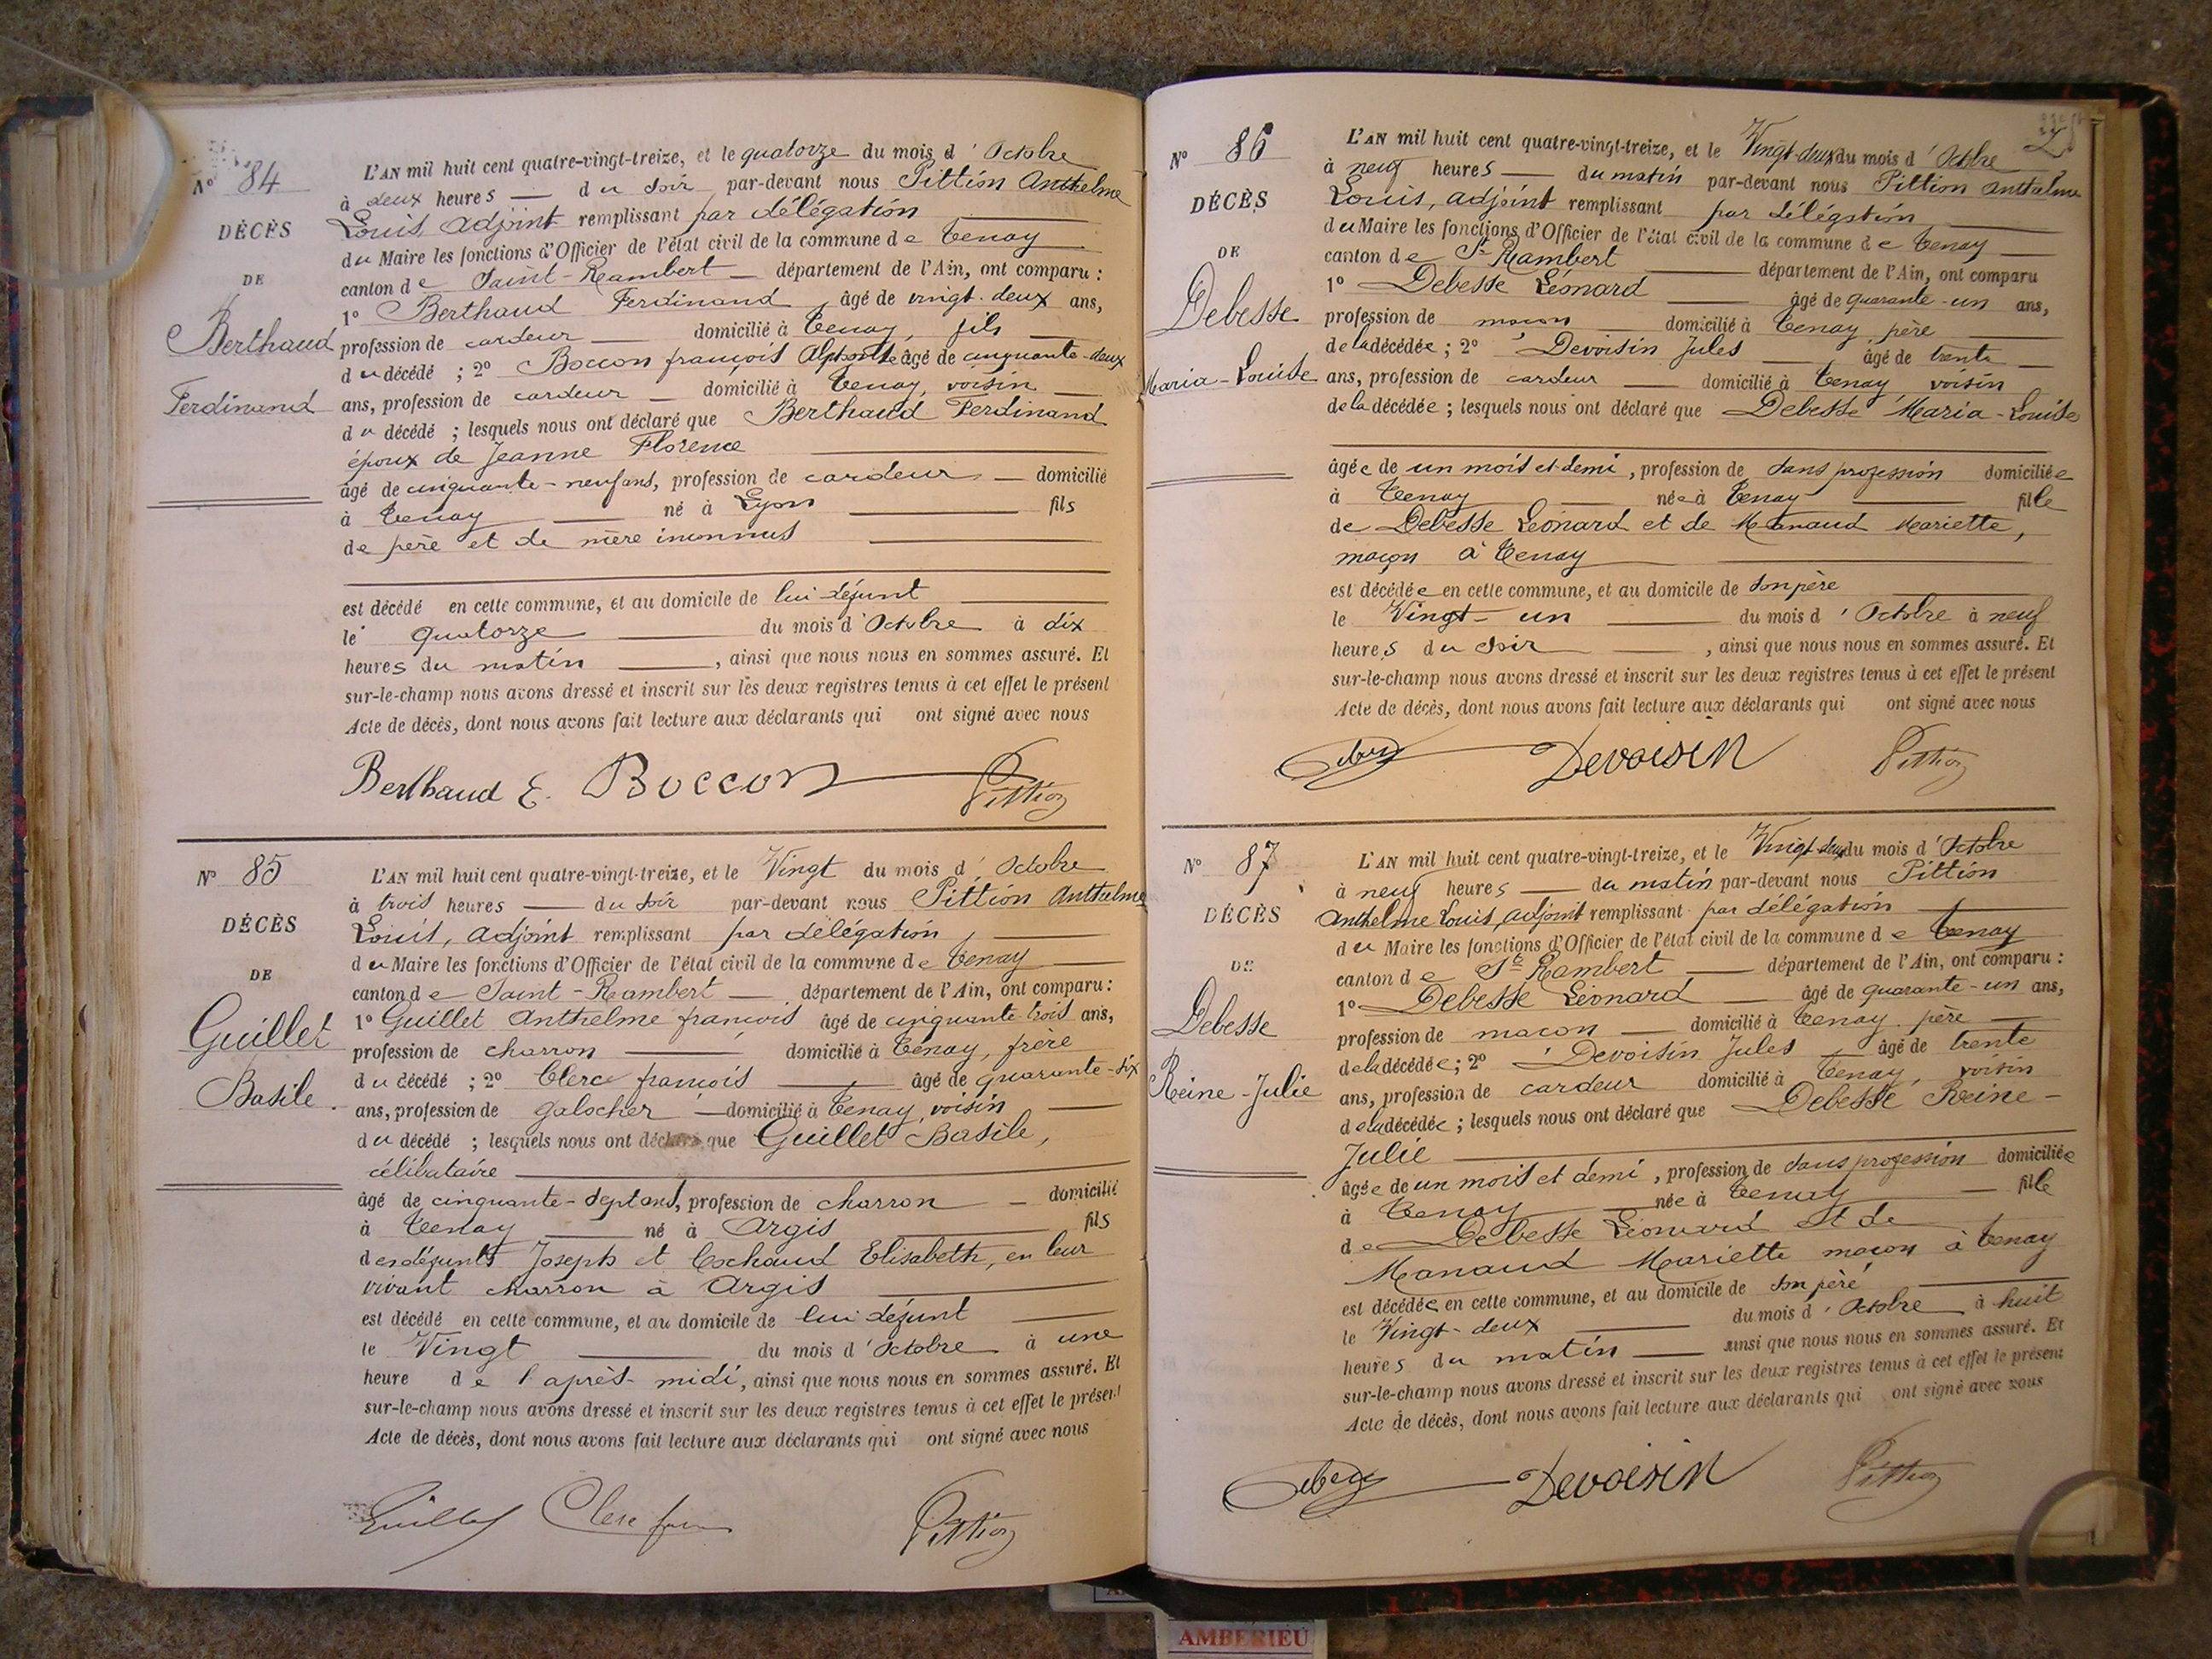 N° 84
DÉCÈS
DE
Berthaud
Ferdinand
L'AN mil huit cent quatre-vingt-treize, et le quatorze du mois d'Octobre
à deux heures — du soir par-devant nous Pittion Anthelme
Louis, adjoint remplissant par délégation
du Maire les fonctions d'Officier de l'état civil de la commune de Tenay
canton de Saint-Rambert — département de l'Ain, ont comparu :
1° Berthaud Ferdinand, âgé de vingt-deux ans,
profession de cardeur — domicilié à Tenay, fils
du décédé ; 2° Boccon françois Alphonse âgé de cinquante-deux
ans, profession de cardeur — domicilié à Tenay, voisin
du décédé ; lesquels nous ont déclaré que Berthaud Ferdinand
époux de Jeanne Florence
âgé de cinquante-neuf ans, profession de cardeur — domicilié
à Tenay — né à Lyon — fils
de père et de mère inconnus
est décédé en cette commune, et au domicile de lui défunt
le quatorze — du mois d'Octobre à dix
heures du matin —, ainsi que nous nous en sommes assuré. Et
sur-le-champ nous avons dressé et inscrit sur les deux registres tenus à cet effet le présent
Acte de décès, dont nous avons fait lecture aux déclarants qui ont signé avec nous
Berthaud E. Boccon Pittion
N° 85
DÉCÈS
DE
Guillet
Basile
L'AN mil huit cent quatre-vingt-treize, et le Vingt du mois d'Octobre
à trois heures — du soir par-devant nous Pittion Anthelme
Louis, adjoint remplissant par délégation
du Maire les fonctions d'Officier de l'état civil de la commune de Tenay
canton de Saint-Rambert — département de l'Ain, ont comparu :
1° Guillet Anthelme françois âgé de cinquante-trois ans,
profession de charron — domicilié à Tenay, frère
du décédé ; 2° Clerc françois — âgé de quarante-six
ans, profession de galocher — domicilié à Tenay, voisin
du décédé ; lesquels nous ont déclaré que Guillet Basile,
célibataire
âgé de cinquante-sept ans, profession de charron — domicilié
à Tenay — né à Argis — fils
des défunts Joseph et Cochaud Elisabeth, en leur
vivant charron à Argis
est décédé en cette commune, et au domicile de lui défunt
le Vingt — du mois d'Octobre à une
heure de l'après-midi, ainsi que nous nous en sommes assuré. Et
sur-le-champ nous avons dressé et inscrit sur les deux registres tenus à cet effet le présent
Acte de décès, dont nous avons fait lecture aux déclarants qui ont signé avec nous
Guillet Clerc Pittion
N° 86
DÉCÈS
DE
Debesse
Maria-Louise
L'AN mil huit cent quatre-vingt-treize, et le Vingt-deux du mois d'Octobre
à neuf heures — du matin par-devant nous Pittion Anthelme
Louis, adjoint remplissant par délégation
du Maire les fonctions d'Officier de l'état civil de la commune de Tenay
canton de St Rambert — département de l'Ain, ont comparu
1° Debesse Léonard — âgé de quarante-un ans,
profession de maçon — domicilié à Tenay, père
de la décédée ; 2° Devoisin Jules — âgé de trente
ans, profession de cardeur — domicilié à Tenay voisin
de la décédée ; lesquels nous ont déclaré que Debesse Maria-Louise
âgée de un mois et demi, profession de sans profession domiciliée
à Tenay — née à Tenay — fille
de Debesse Léonard et de Manaud Mariette,
maçon à Tenay
est décédée en cette commune, et au domicile de son père
le Vingt-un — du mois d'Octobre à neuf
heures du soir —, ainsi que nous nous en sommes assuré. Et
sur-le-champ nous avons dressé et inscrit sur les deux registres tenus à cet effet le présent
Acte de décès, dont nous avons fait lecture aux déclarants qui ont signé avec nous
Devoisin Pittion
N° 87
DÉCÈS
DE
Debesse
Reine-Julie
L'AN mil huit cent quatre-vingt-treize, et le Vingt-deux du mois d'Octobre
à neuf heures — du matin par-devant nous Pittion
Anthelme Louis, adjoint remplissant par délégation
du Maire les fonctions d'Officier de l'état civil de la commune de Tenay
canton de St Rambert — département de l'Ain, ont comparu :
1° Debesse Léonard — âgé de quarante-un ans,
profession de maçon — domicilié à Tenay, père
de la décédée ; 2° Devoisin Jules, âgé de trente
ans, profession de cardeur domicilié à Tenay, voisin
de la décédée ; lesquels nous ont déclaré que Debesse Reine-
Julie
âgée de un mois et demi, profession de sans profession domiciliée
à Tenay — née à Tenay — fille
de Debesse Léonard et de
Manaud Mariette maçon à Tenay
est décédée en cette commune, et au domicile de son père
le Vingt-deux — du mois d'Octobre à huit
heures du matin — ainsi que nous nous en sommes assuré. Et
sur-le-champ nous avons dressé et inscrit sur les deux registres tenus à cet effet le présent
Acte de décès, dont nous avons fait lecture aux déclarants qui ont signé avec nous
Devoisin Pittion
AMBERIEU